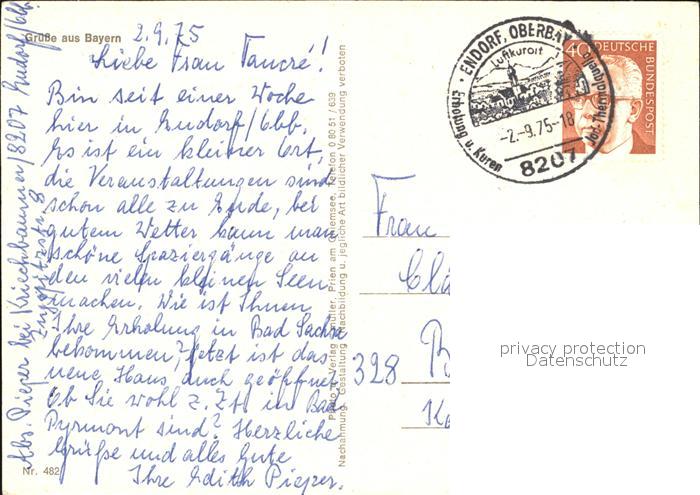 Grüße aus Bayern
2.9.75
Liebe Frau Tancré!
Bin seit einer Woche
hier in Endorf/Obb.
Es ist ein kleiner Ort,
die Veranstaltungen sind
schon alle zu Ende, bei
gutem Wetter kann man
schöne Spaziergänge an
den vielen kleinen Seen
machen. Wie ist Ihnen
Ihre Erholung in Bad Sachsa
bekommen? Jetzt ist das
neue Haus auch geöffnet
Ob Sie wohl z. Zt. in Bad
Pyrmont sind? Herzliche
Grüße und alles Gute
Ihre Edith Pieper.
Nr. 482
Abs. Pieper bei Kirchbaumer/8207 Endorf/Obb.
Prien am Chiemsee, Telefon 0 80 51 / 639
Nachahmung, Gestaltung, Nachbildung u. jegliche Art bildlicher Verwendung verboten
ENDORF, OBERBAY
Luftkurort
Erholung u. Kuren
Jod-Thermalquelle
-2.-9.75-18
8207
40
DEUTSCHE
BUNDESPOST
Frau
328
privacy protection
Datenschutz